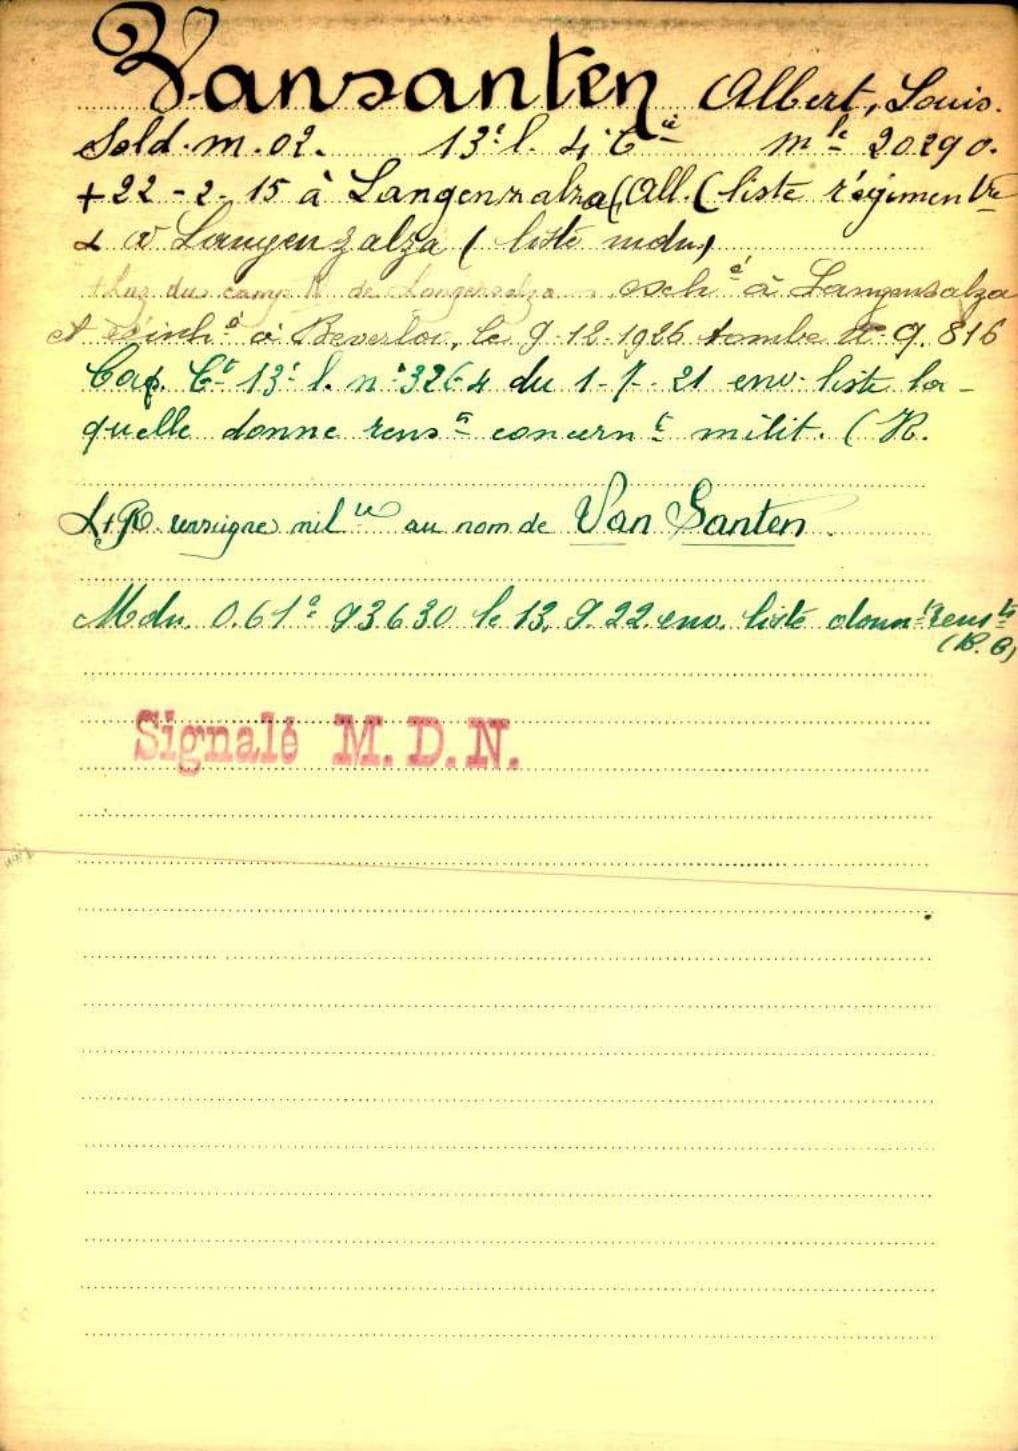 Vansanten Albert, Louis.
Sold. m. 02. 13e l. 4e Cie mle 20290.
+ 22-2-15 à Langenzalza (All. (liste régimentre
à Langenzalza (liste mdn)
du camp de Langensalza exhé à Langensalza
et réinhé à Beverloo, le 9-12-1926 tombe no 9.816
Cap. Ct 13e l. no 3264 du 1-7-21 env. liste la-
quelle donne rensts concernt milit. (R.
renseigne milre au nom de Van Santen.
Mdn. 0.61e 93630 le 13.9.22. env. liste donnt rensts
(R. C)
Signalé M.D.N.